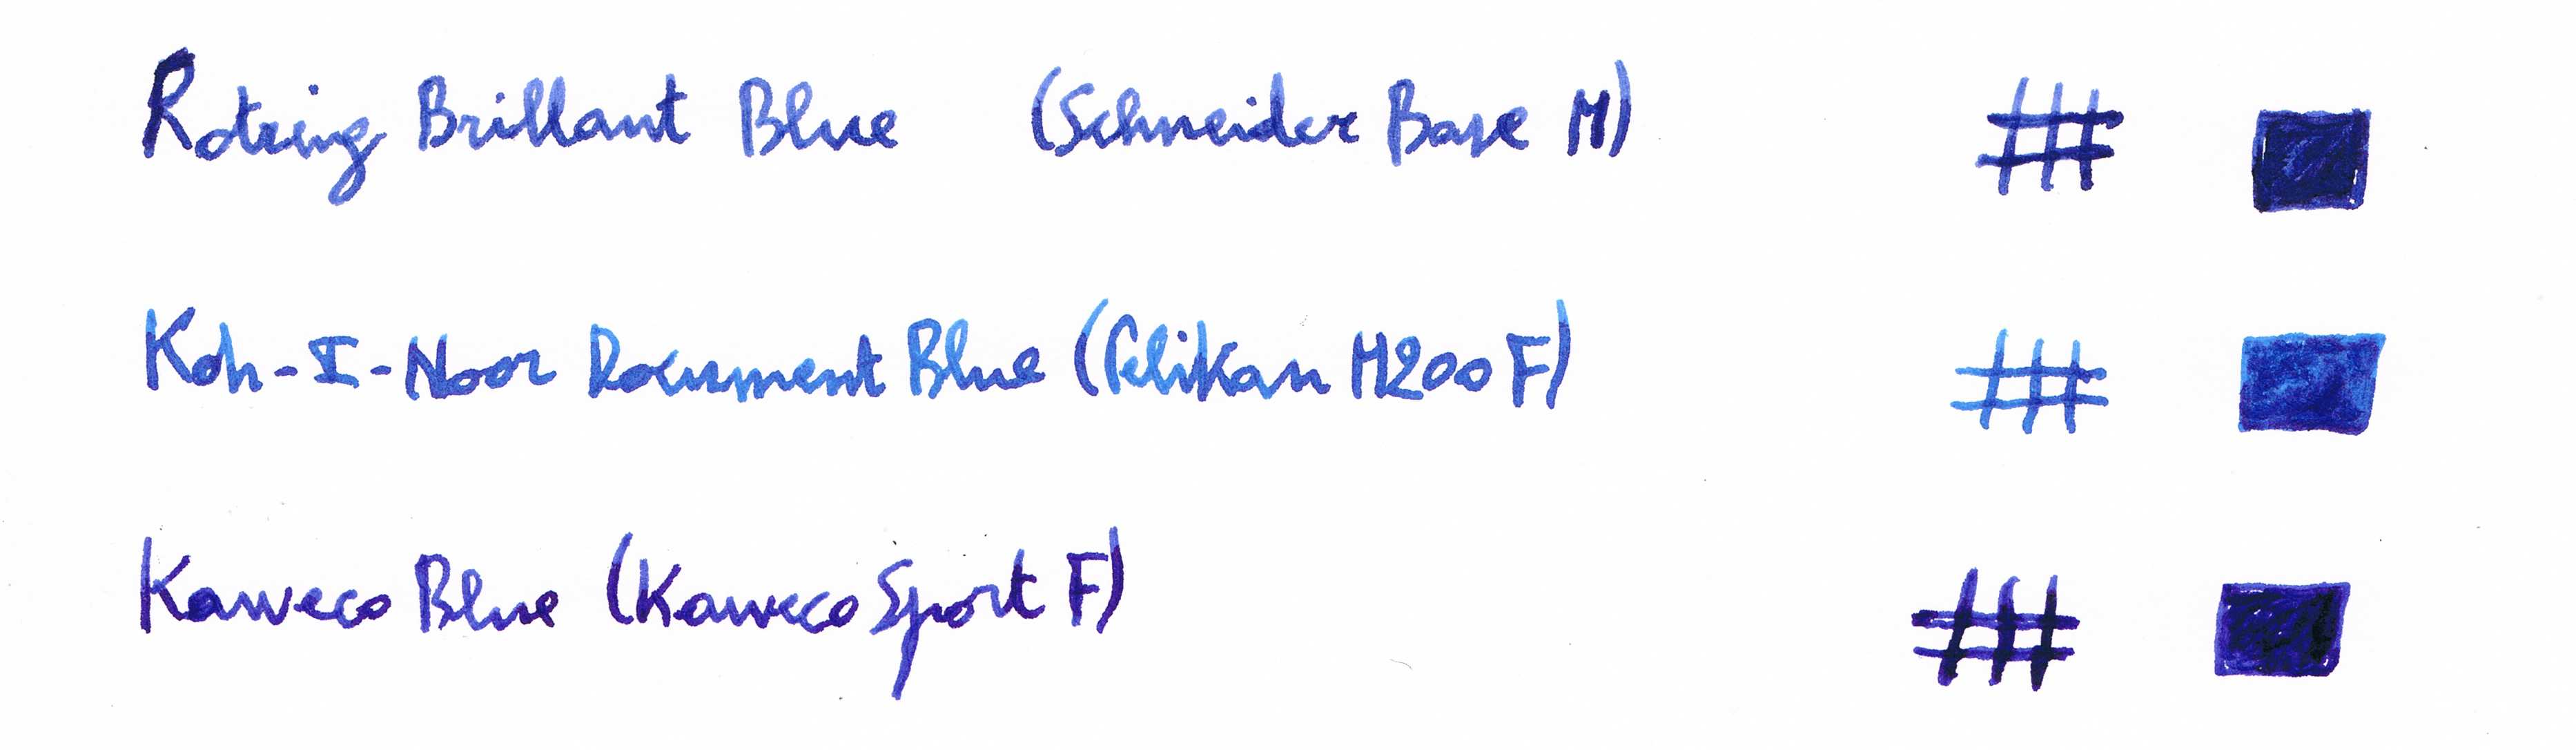 Rotring Brillant Blue (Schneider Base M)
Koh-I-Noor Document Blue (Pelikan M200 F)
Kaweco Blue (Kaweco Sport F)